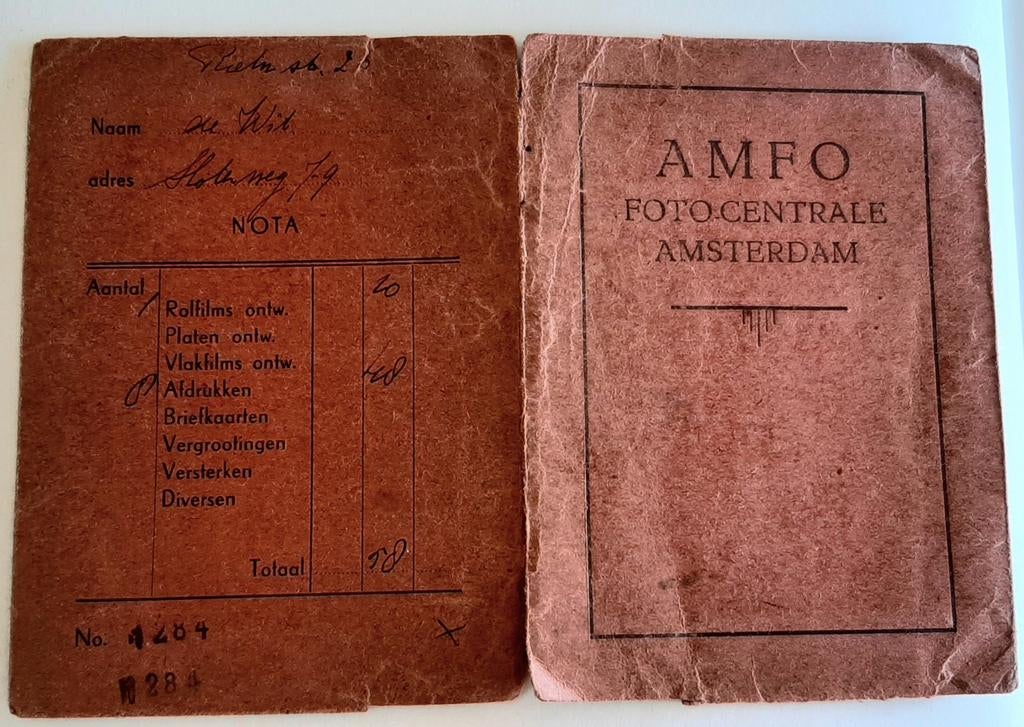 st. 2
Naam de Wit
adres Sloterweg 79
NOTA
Aantal 20
1 Rolfilms ontw.
Platen ontw.
Vlakfilms ontw.
8 Afdrukken 48
Briefkaarten
Vergrootingen
Versterken
Diversen
Totaal 58
No. 1284
284
X
AMFO
FOTO-CENTRALE
AMSTERDAM